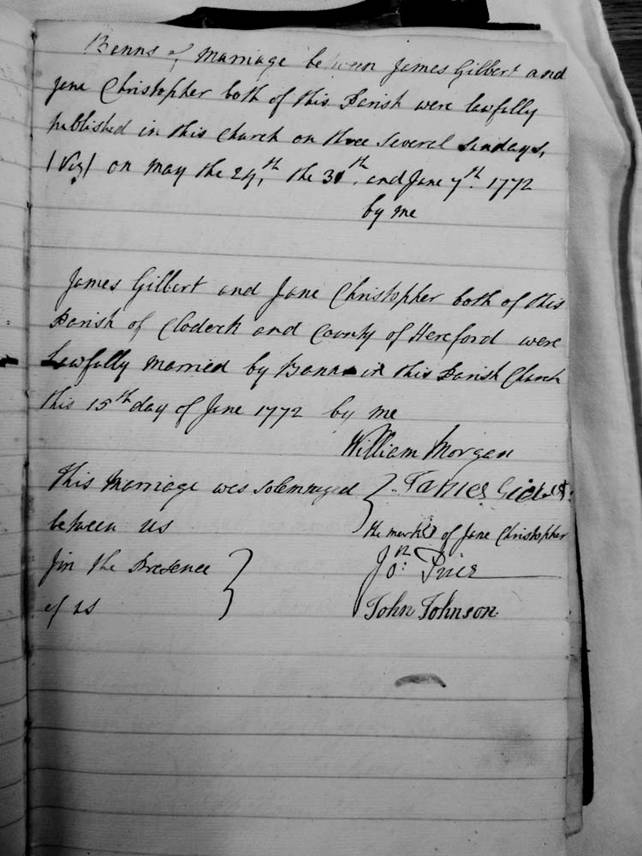 Banns of Marriage between James Gilbert and
Jane Christopher both of this Parish were lawfully
published in this Church on three several Sundays,
(Viz) on May the 24th, the 31th. and June 7th. 1772
by me
James Gilbert and Jane Christopher both of this
Parish of Clodock and County of Hereford were
Lawfully Married by Banns in this Parish Church
this 15th day of June 1772 by me
William Morgan
This Marriage was Solemnized
James Gilbert
between us
the mark of Jane Christopher
In the Presence
Jon: Price
of us
John Johnson